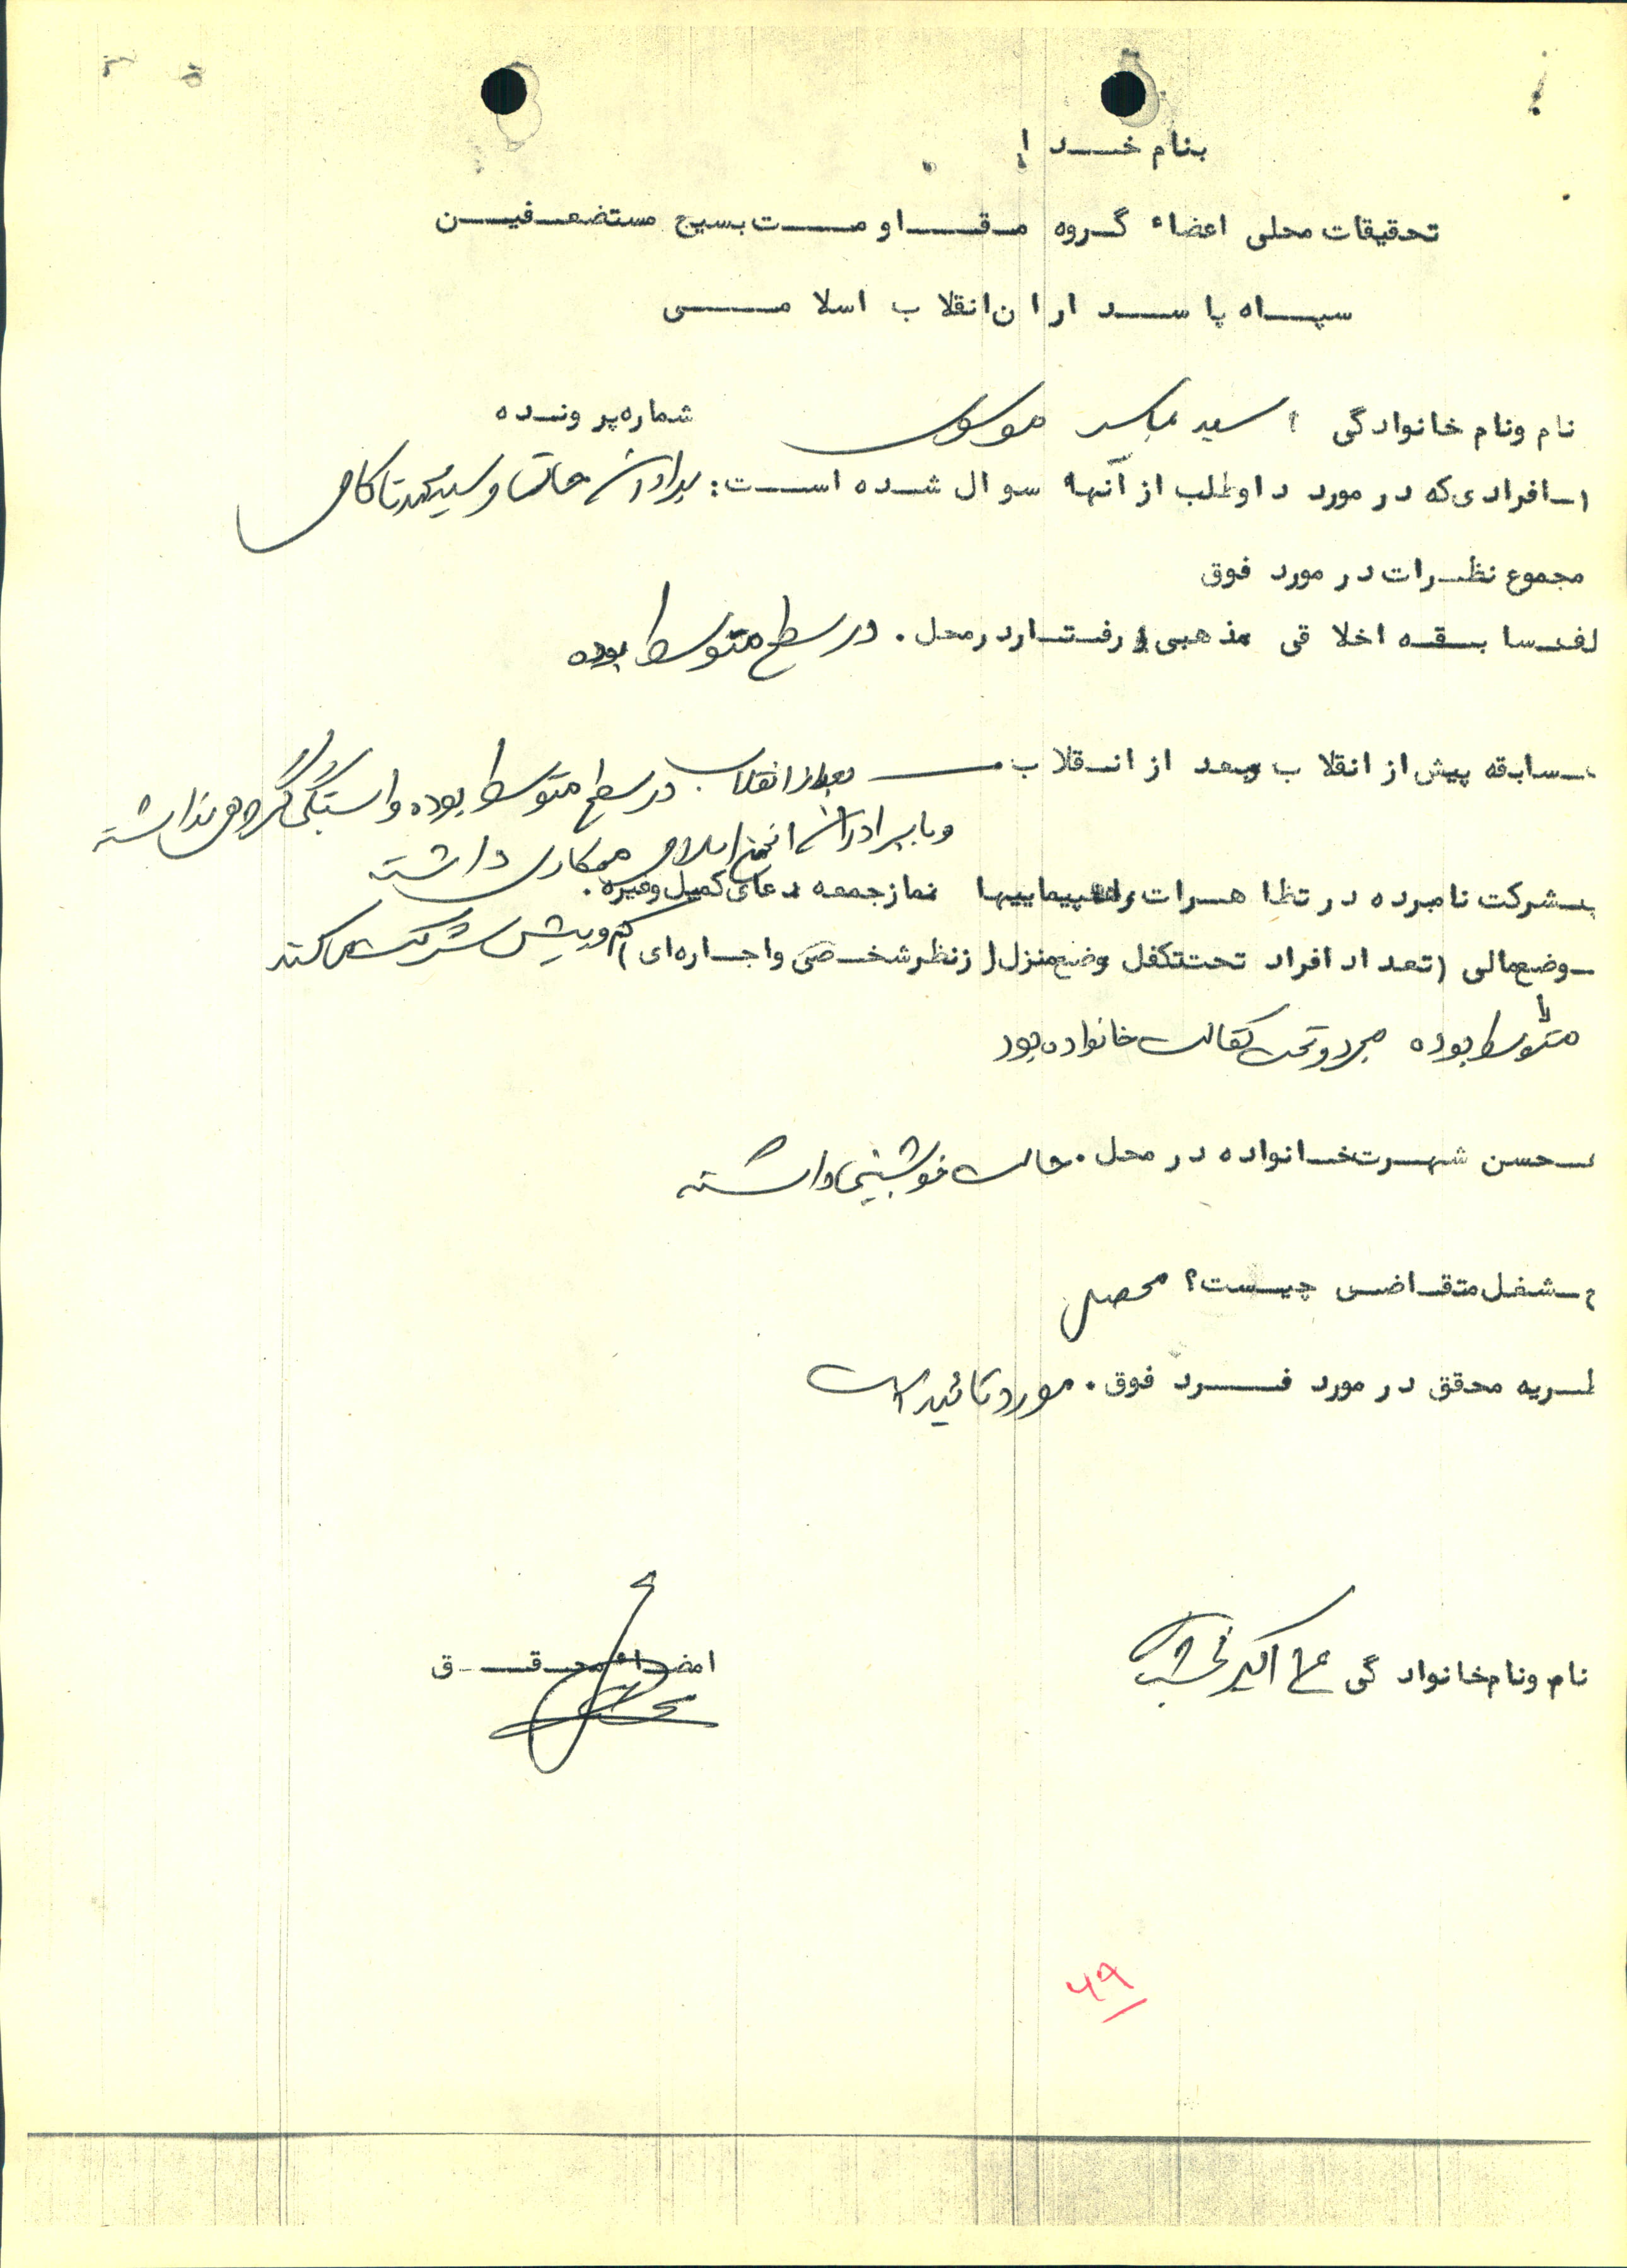 بنام خدا
تحقیقات محلی اعضاء گروه مقاومت بسیج مستضعفین
سپاه پاسداران انقلاب اسلامی
نام ونام خانوادگی : سید عباس موسوی شماره پرونده
۱ـ افرادی که در مورد داوطلب از آنها سوال شده است: برادران
مجموع نظرات در مورد فوق
لف ـ سابقه اخلاقی مذهبی و رفتار در محل . در سطح متوسط بوده
ـ سابقه پیش از انقلاب وبعد از انقلاب . ــ بعد از انقلاب در سطح متوسط بوده وابستگی گروهی نداشته
و با برادران انجمن اسلامی همکاری داشته
ـ شرکت نامبرده در تظاهرات راهپیماییها نماز جمعه دعای کمیل وغیره . کم وبیش شرکت میکند
ـ وضع مالی (تعداد افراد تحت تکفل وضع منزل از نظر شخصی واجاره ای)
متوسط بوده مجرد و تحت کفالت خانواده بود
ـ حسن شهرت خانواده در محل . حالت خوشبینی داشته
ـ شغل متقاضی چیست؟ محصل
ظریه محقق در مورد فرد فوق . مورد تائید است
نام ونام خانوادگی علی اکبر امضاء محقق
۴۹